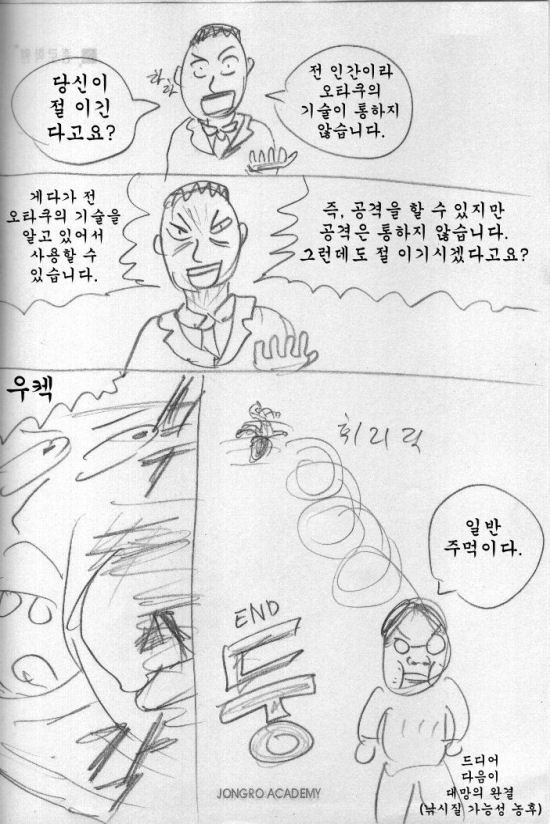 하하
당신이
절 이긴
다고요?
전 인간이라
오타쿠의
기술이 통하지
않습니다.
게다가 전
오타쿠의 기술을
알고 있어서
사용할 수
있습니다.
즉, 공격을 할 수 있지만
공격은 통하지 않습니다.
그런데도 절 이기시겠다고요?
우켁
휘리릭
일반
주먹이다.
END
둥
드디어
다음이
대망의 완결
(낚시질 가능성 농후)
JONGRO ACADEMY